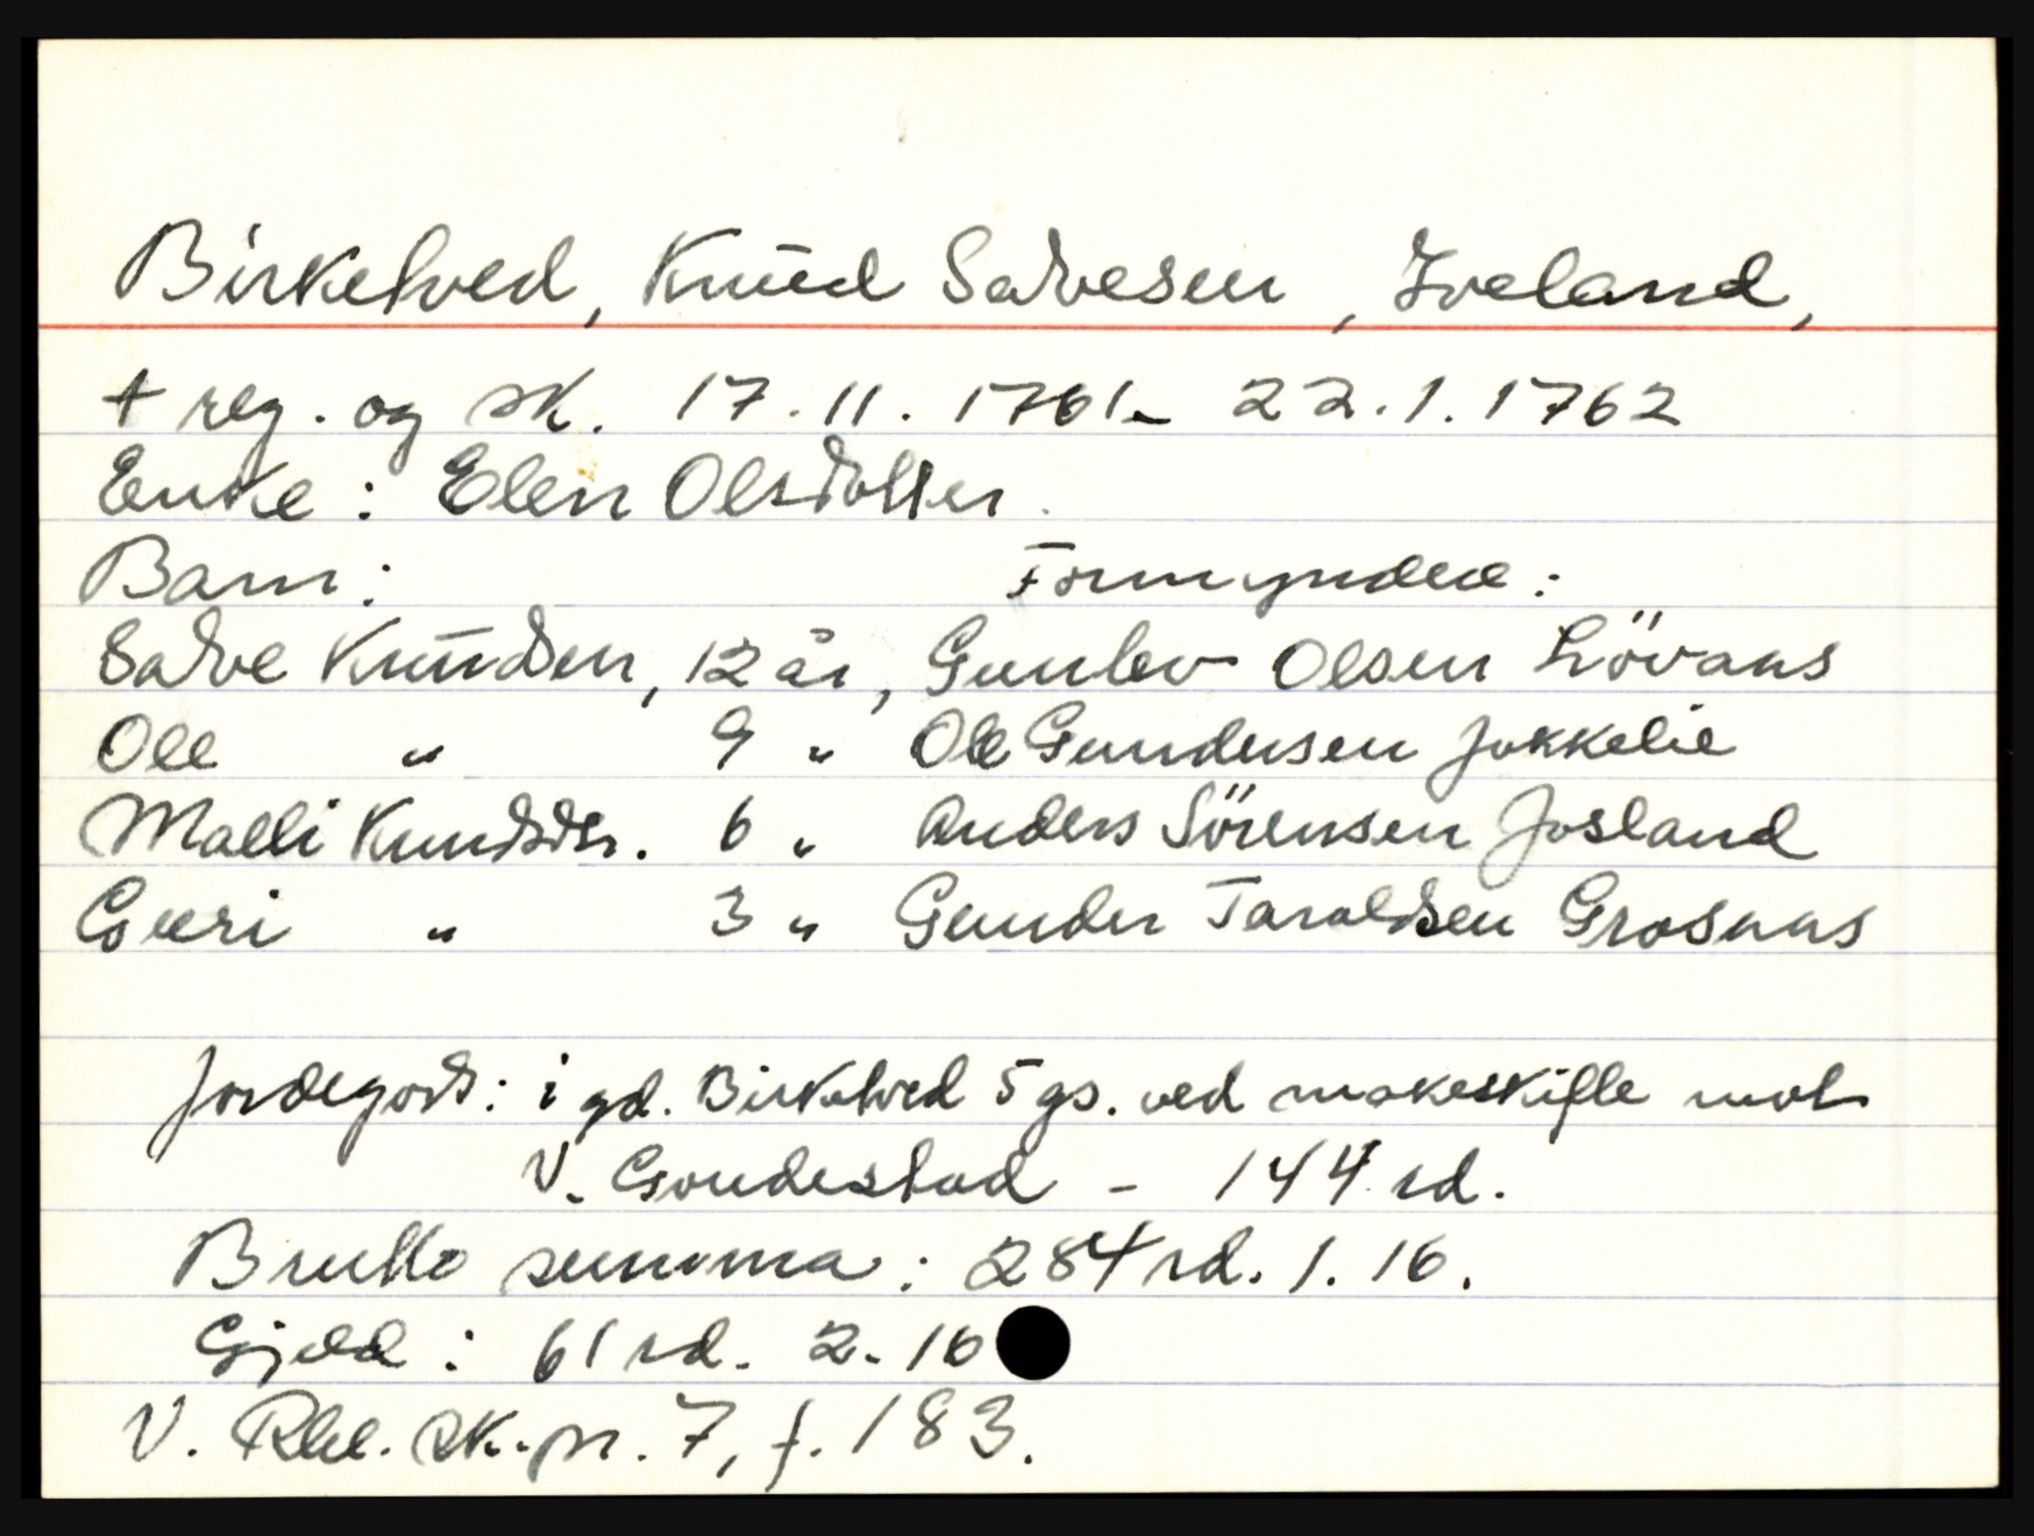 Birketved, Knud Salvesen, Iveland,
+ reg. og sk. 17.11.1761 - 22.1.1762
Enke: Elen Olsdotter.
Barn: Formyndere:
Salve Knudsen, 12 år, Gunlev Olsen Lövaas
Ole " 9 " Ole Gundersen Jokkelie
Malli Knudsdtr. 6 " Anders Sörensen Josland
Guri " 3 " Gunder Taraldsen Grosaas
Jordegods: i gd. Birketved 5 gs. ved makeskifte mot
V. Goudestad - 144 rd.
Brutto summa: 284 rd. 1. 16.
Gjeld: 61 rd. 2. 16
V. Rbl. sk.pr. 7, f. 183.